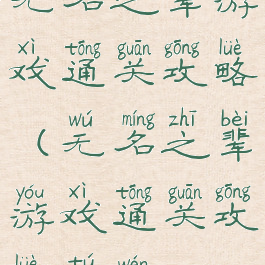 无名之辈游
xì tōng guān gōng lüè
戏通关攻略
wú míng zhī bèi
（无名之辈
yóu xì tōng guān gōng
游戏通关攻
lüè tú wén